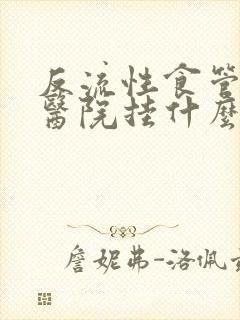 反流性食管
醫院挂什麼
詹妮弗-洛佩